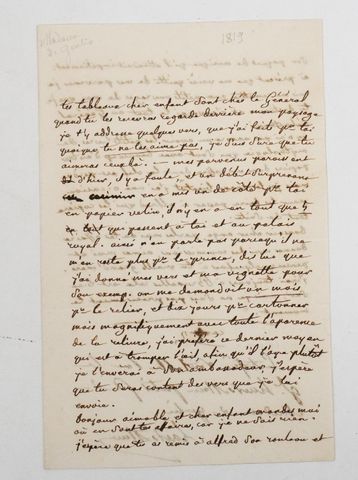 1819
Madame
de Genlis
tes tableaux cher enfant sont chez le Général
quand tu les recevras regarde derrière mon paysage
je t'y addresse quelques vers, que j'ai faits pr. toi
quoique tu ne les aime pas, je suis sûre que tu
aimeras ceux là. — mes parvenus paroissent
d'hier, il y a foule, et un débit surprenant
casimir en a mis un de côté pr. toi
en papier velin, il n'y en a en tout que
en tout qui passent à toi et au palais
royal. ainsi n'en parle pas parcequ'il ne
m'en reste plus pr. le prince, dis lui que
j'ai donné mes vers et ma vignette pour
son exemp. on me demandoit un mois
pr. le relier, et dix jours pr. cartonner
mais magnifiquement avec toute l'aparence
de la reliure, j'ai préféré ce dernier moyen
qui est à tromper l'œil, afin qu'il l'aye plutôt
je l'enverai à son ambassadeur, j'espère
que tu seras content des vers que je lui
envoie.
bonjour aimable et cher enfant mandes moi
où en sont tes affaires, car je ne sais rien.
j'espère que tu as remis à alfred son rouleau et